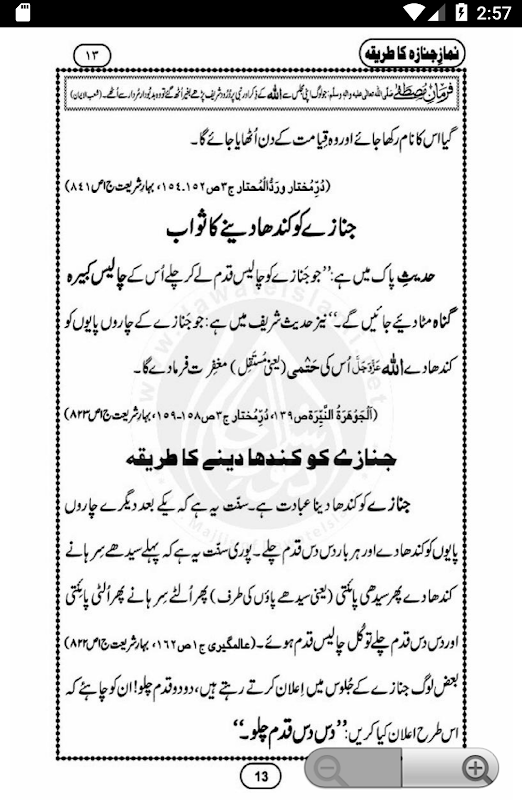 2:57
نمازِ جنازہ کا طریقہ
۱۳
فرمانِ مصطفٰے صلی اللہ تعالٰی علیہ والہ وسلم: جو لوگ اپنی مجلس سے اللہ کے ذکر اور نبی پر دُرُود شریف پڑھے بغیر اُٹھ گئے تو وہ بدبودار مُردار سے اُٹھے۔ (شعب الایمان)
گیا اس کا نام رکھا جائے اور وہ قِیامت کے دن اُٹھایا جائے گا۔
(دُرِّمُختار وردُّالْمُحتار ج۳ ص۱۵۲۔۱۵۴، بہارِ شریعت ج۱ ص۸۴۱)
جنازے کو کندھا دینے کا ثواب
حدیثِ پاک میں ہے: ’’جو جنازے کو چالیس قدم لے کر چلے اُس کے چالیس کبیرہ
گناہ مٹا دیئے جائیں گے۔‘‘ نیز حدیث شریف میں ہے: جو جنازے کے چاروں پایوں کو
کندھا دے اللہ عَزَّوَجَلَّ اُس کی حَتْمی (یعنی مُستَقِل) مغفِرت فرما دے گا۔
(اَلْجَوْہَرَۃُ النَّیِّرَۃ ص۱۳۹، دُرِّمُختار ج۳ ص۱۵۸۔۱۵۹، بہارِ شریعت ج۱ ص۸۲۳)
جنازے کو کندھا دینے کا طریقہ
جنازے کو کندھا دینا عبادت ہے۔ سنّت یہ ہے کہ یکے بعد دیگرے چاروں
پایوں کو کندھا دے اور ہر بار دس دس قدم چلے۔ پوری سنّت یہ ہے کہ پہلے سیدھے سِرہانے
کندھا دے پھر سیدھی پائنتی (یعنی سیدھے پاؤں کی طرف) پھر اُلٹے سِرہانے پھر اُلٹی پائنتی
اور دس دس قدم چلے تو کُل چالیس قدم ہوئے۔ (عالمگیری ج۱ ص۱۶۲، بہارِ شریعت ج۱ ص۸۲۲)
بعض لوگ جنازے کے جُلوس میں اِعلان کرتے رہتے ہیں، دو دو قدم چلو! ان کو چاہئے کہ
اس طرح اعلان کیا کریں: ’’دس دس قدم چلو۔‘‘
13